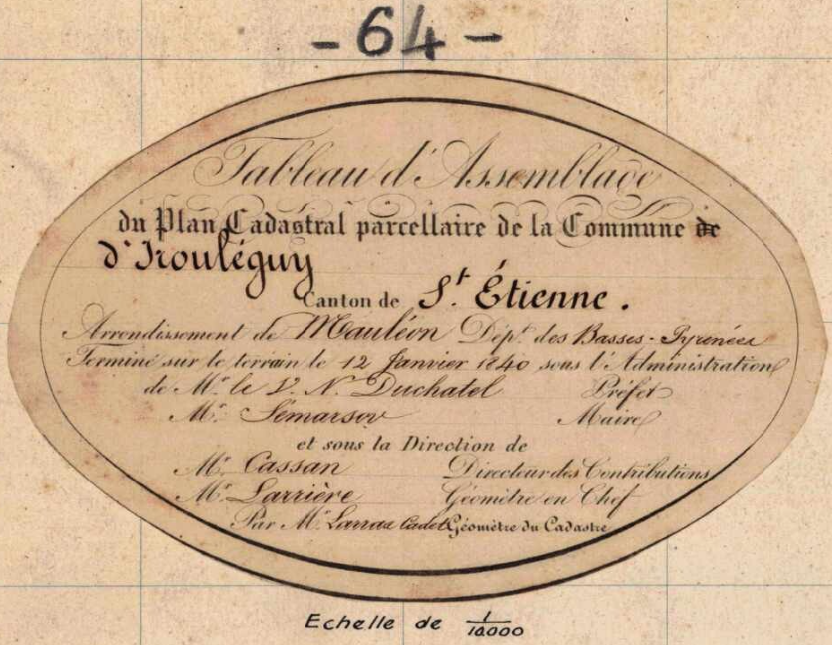 - 64 -
Tableau d'Assemblage
du Plan Cadastral parcellaire de la Commune de
d'Irouléguy
Canton de St. Étienne.
Arrondissement de Mauléon Dépt. des Basses-Pyrénées
Terminé sur le terrain le 12 Janvier 1840 sous l'Administration
de Mr. le V. N. Duchatel Préfet
Mr. Maire
et sous la Direction de
Mr. Cassan Directeur des Contributions
Mr. Larrière Géomètre en Chef
Par Mr. Larraz Cadet Géomètre du Cadastre
Echelle de 1/10000